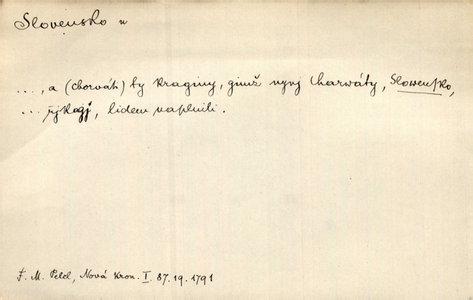 Slovensko n
..., a (chorvát) ty kraginy, gimž nynj Charwáty, Slowensko,
... řjkagj, lidem naplnili.
F. M. Pelcl, Nová Kron. I. 87.19.1791